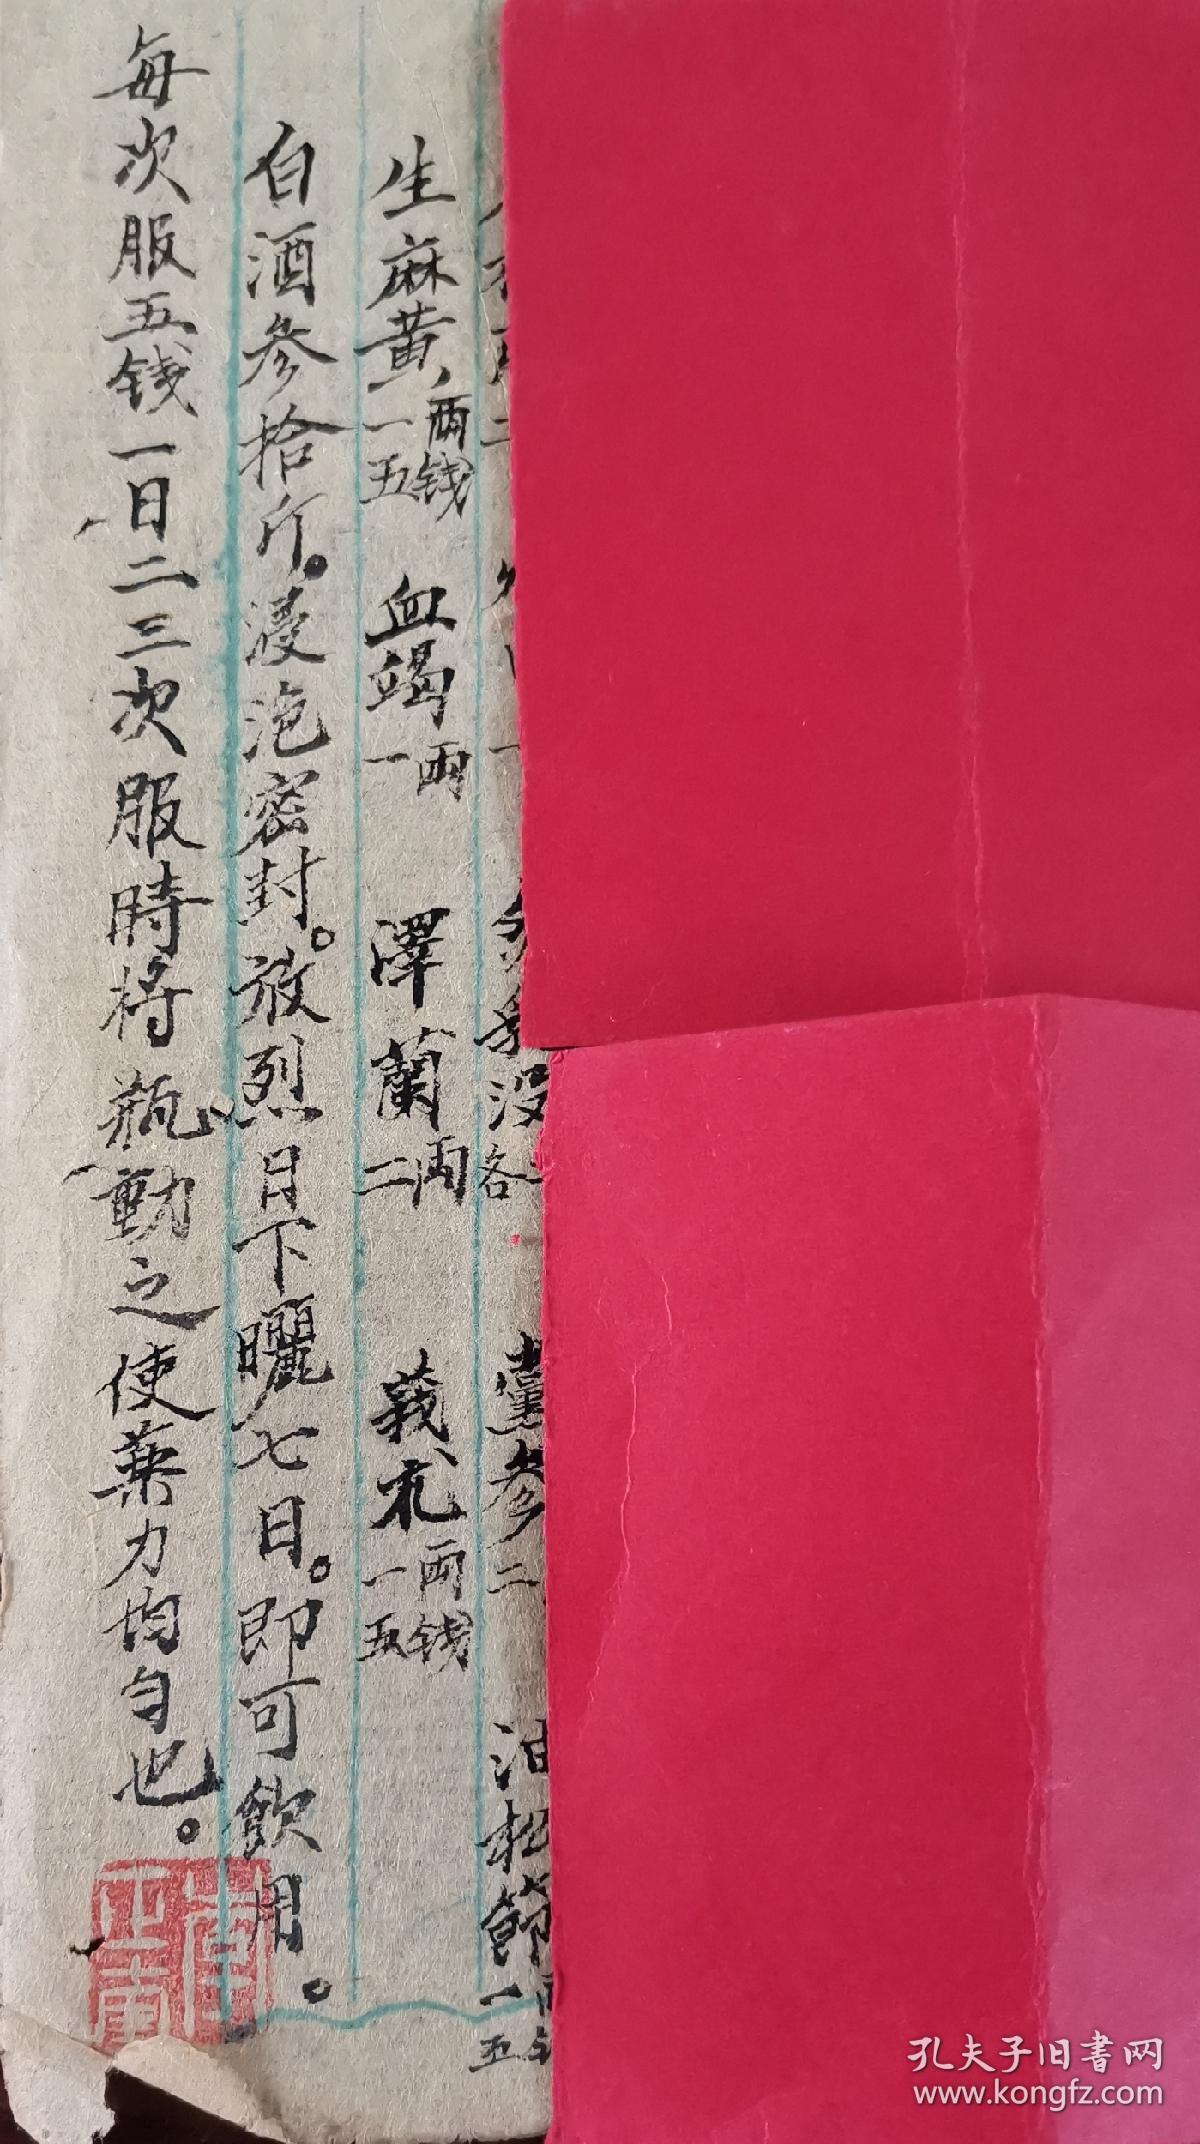 没各
黨参二
油松節一五
生麻黄一两五钱 血竭一两 澤蘭二两 莪朮一两五钱
白酒参拾斤。浸泡密封。放烈日下曬七日。即可飲用。
每次服五钱一日二三次服時将瓶動之使藥力均匀也。
孔夫子旧書网
www.kongfz.com